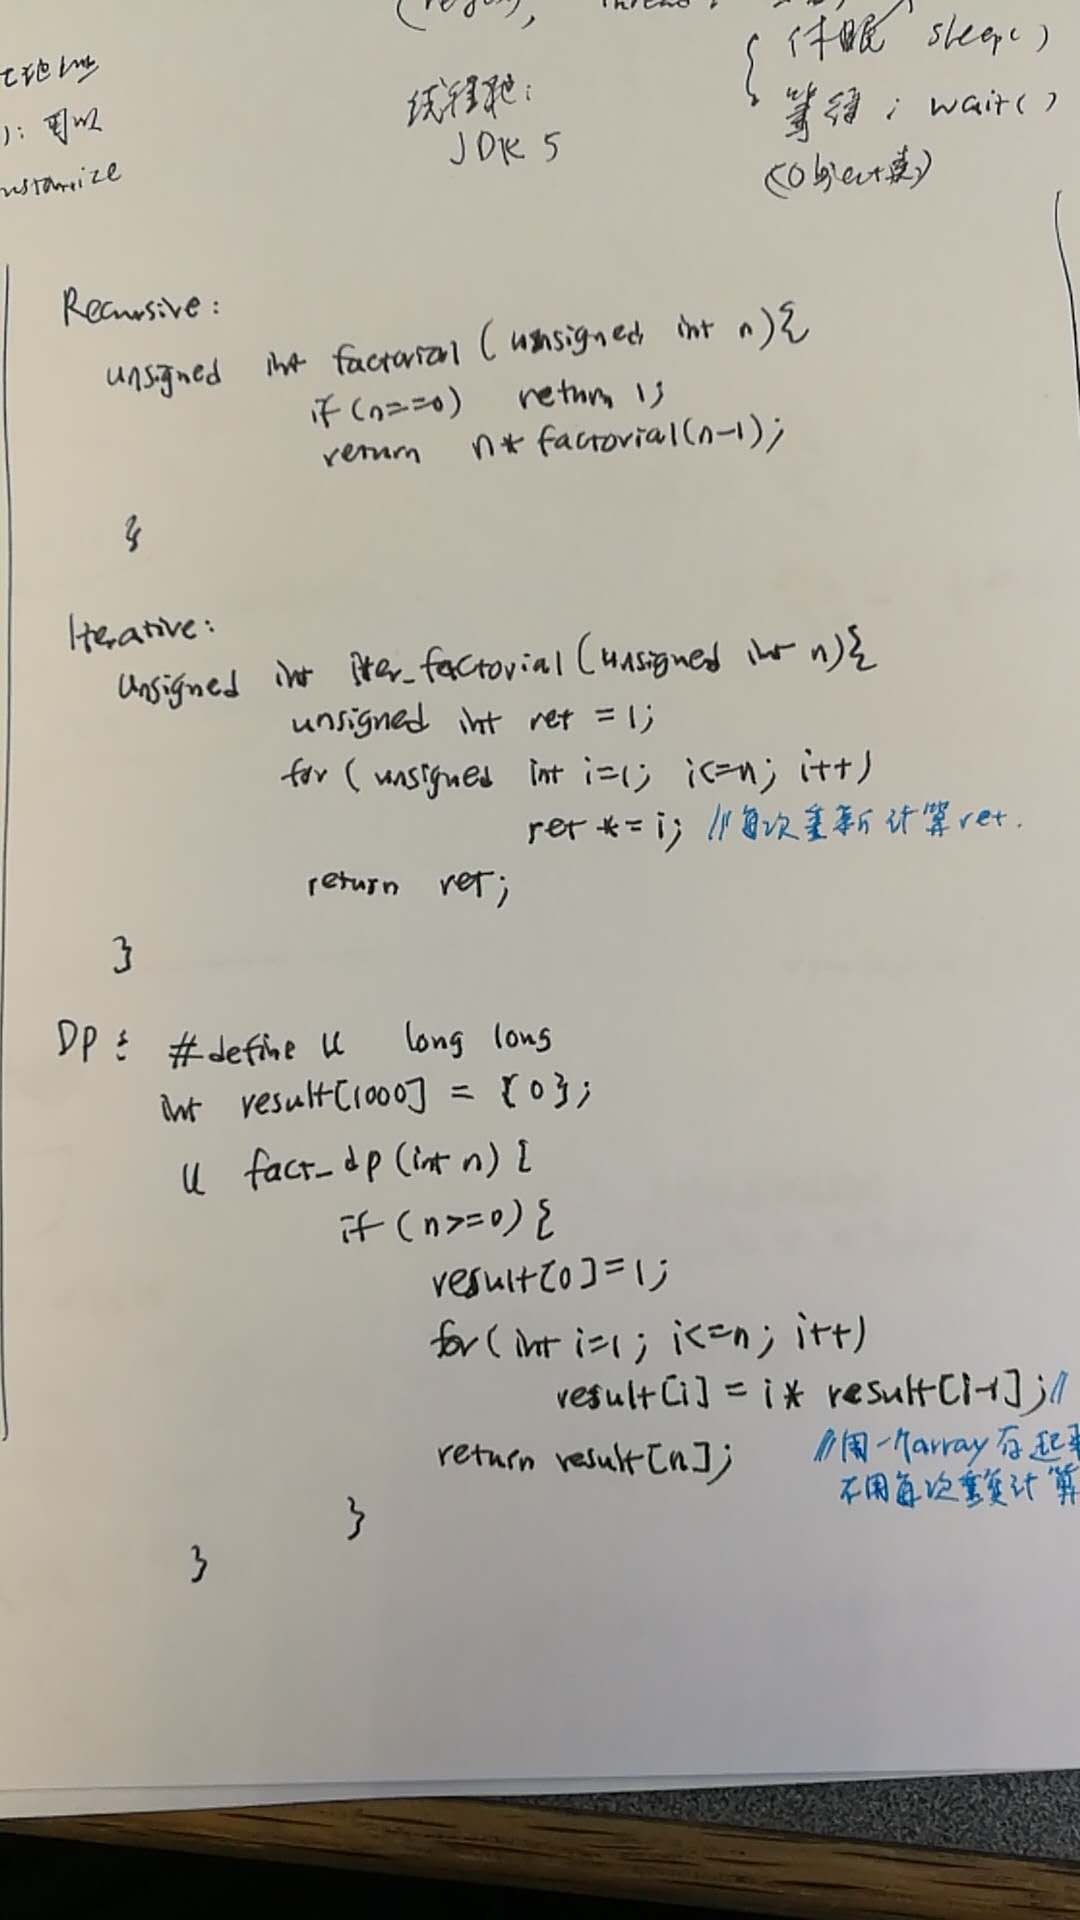 线程池:
JDK 5
休眠 sleep()
等待; wait()
(Object类)
): 可以
Recursive:
unsigned int factorial (unsigned int n){
if (n==0) return 1;
return n* factorial(n-1);
}
Iterative:
unsigned int iter_factorial (unsigned int n){
unsigned int ret =1;
for ( unsigned int i=1; i<=n; i++)
ret *= i; //每次重新计算ret.
return ret;
}
DP: #define ll long long
int result[1000] = {0};
ll fact_dp (int n) {
if (n>=0) {
result[0]=1;
for( int i=1; i<=n; i++)
result[i] = i* result[i-1];//
return result[n]; //用一个array存起来
不用每次重复计算
}
}